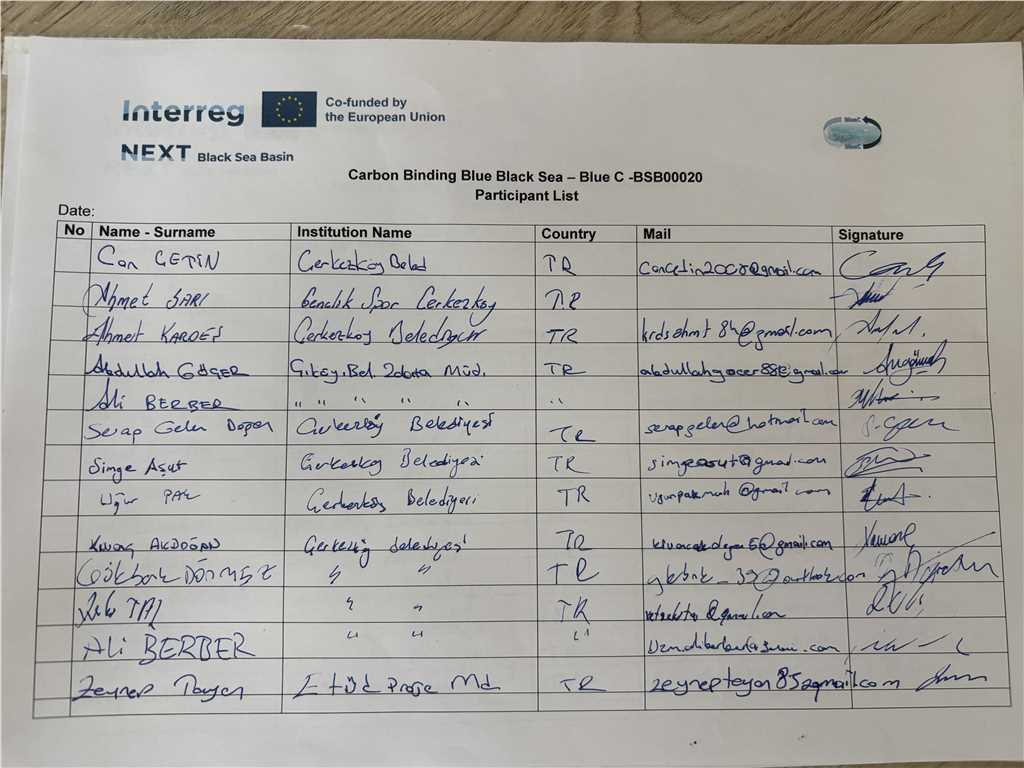 Interreg Co-funded by
the European Union
NEXT Black Sea Basin
Carbon Binding Blue Black Sea – Blue C -BSB00020
Participant List
Date:
No Name - Surname Institution Name Country Mail Signature
Can ÇETİN Çerkezköy Beled TR cancetin2008@gmail.com
Ahmet SARI Gençlik Spor Çerkezköy TR
Ahmet KARDEŞ Çerkezköy Belediyesi TR krdsahmt84@gmail.com
Abdullah GÖÇER Ç.köy.Bel. Zabıta Müd. TR abdullahgocer88@gmail.com
Ali BERBER " " " " " "
Serap Geler Doğan Çerkezköy Belediyesi TR serapgeler@hotmail.com
Simge Aşut Çerkezköy Belediyesi TR simgeasut@gmail.com
Uğur PAK Çerkezköy Belediyesi TR @gmail.com
Kıvanç AKDOĞAN Çerkezköy Belediyesi TR kivancakdogan5@gmail.com
Gökberk DÖNMEZ " " TR
TAŞ " " TR
Ali BERBER " " "
Zeynep Etüd Proje Md TR zeynepteyon85@gmail.com